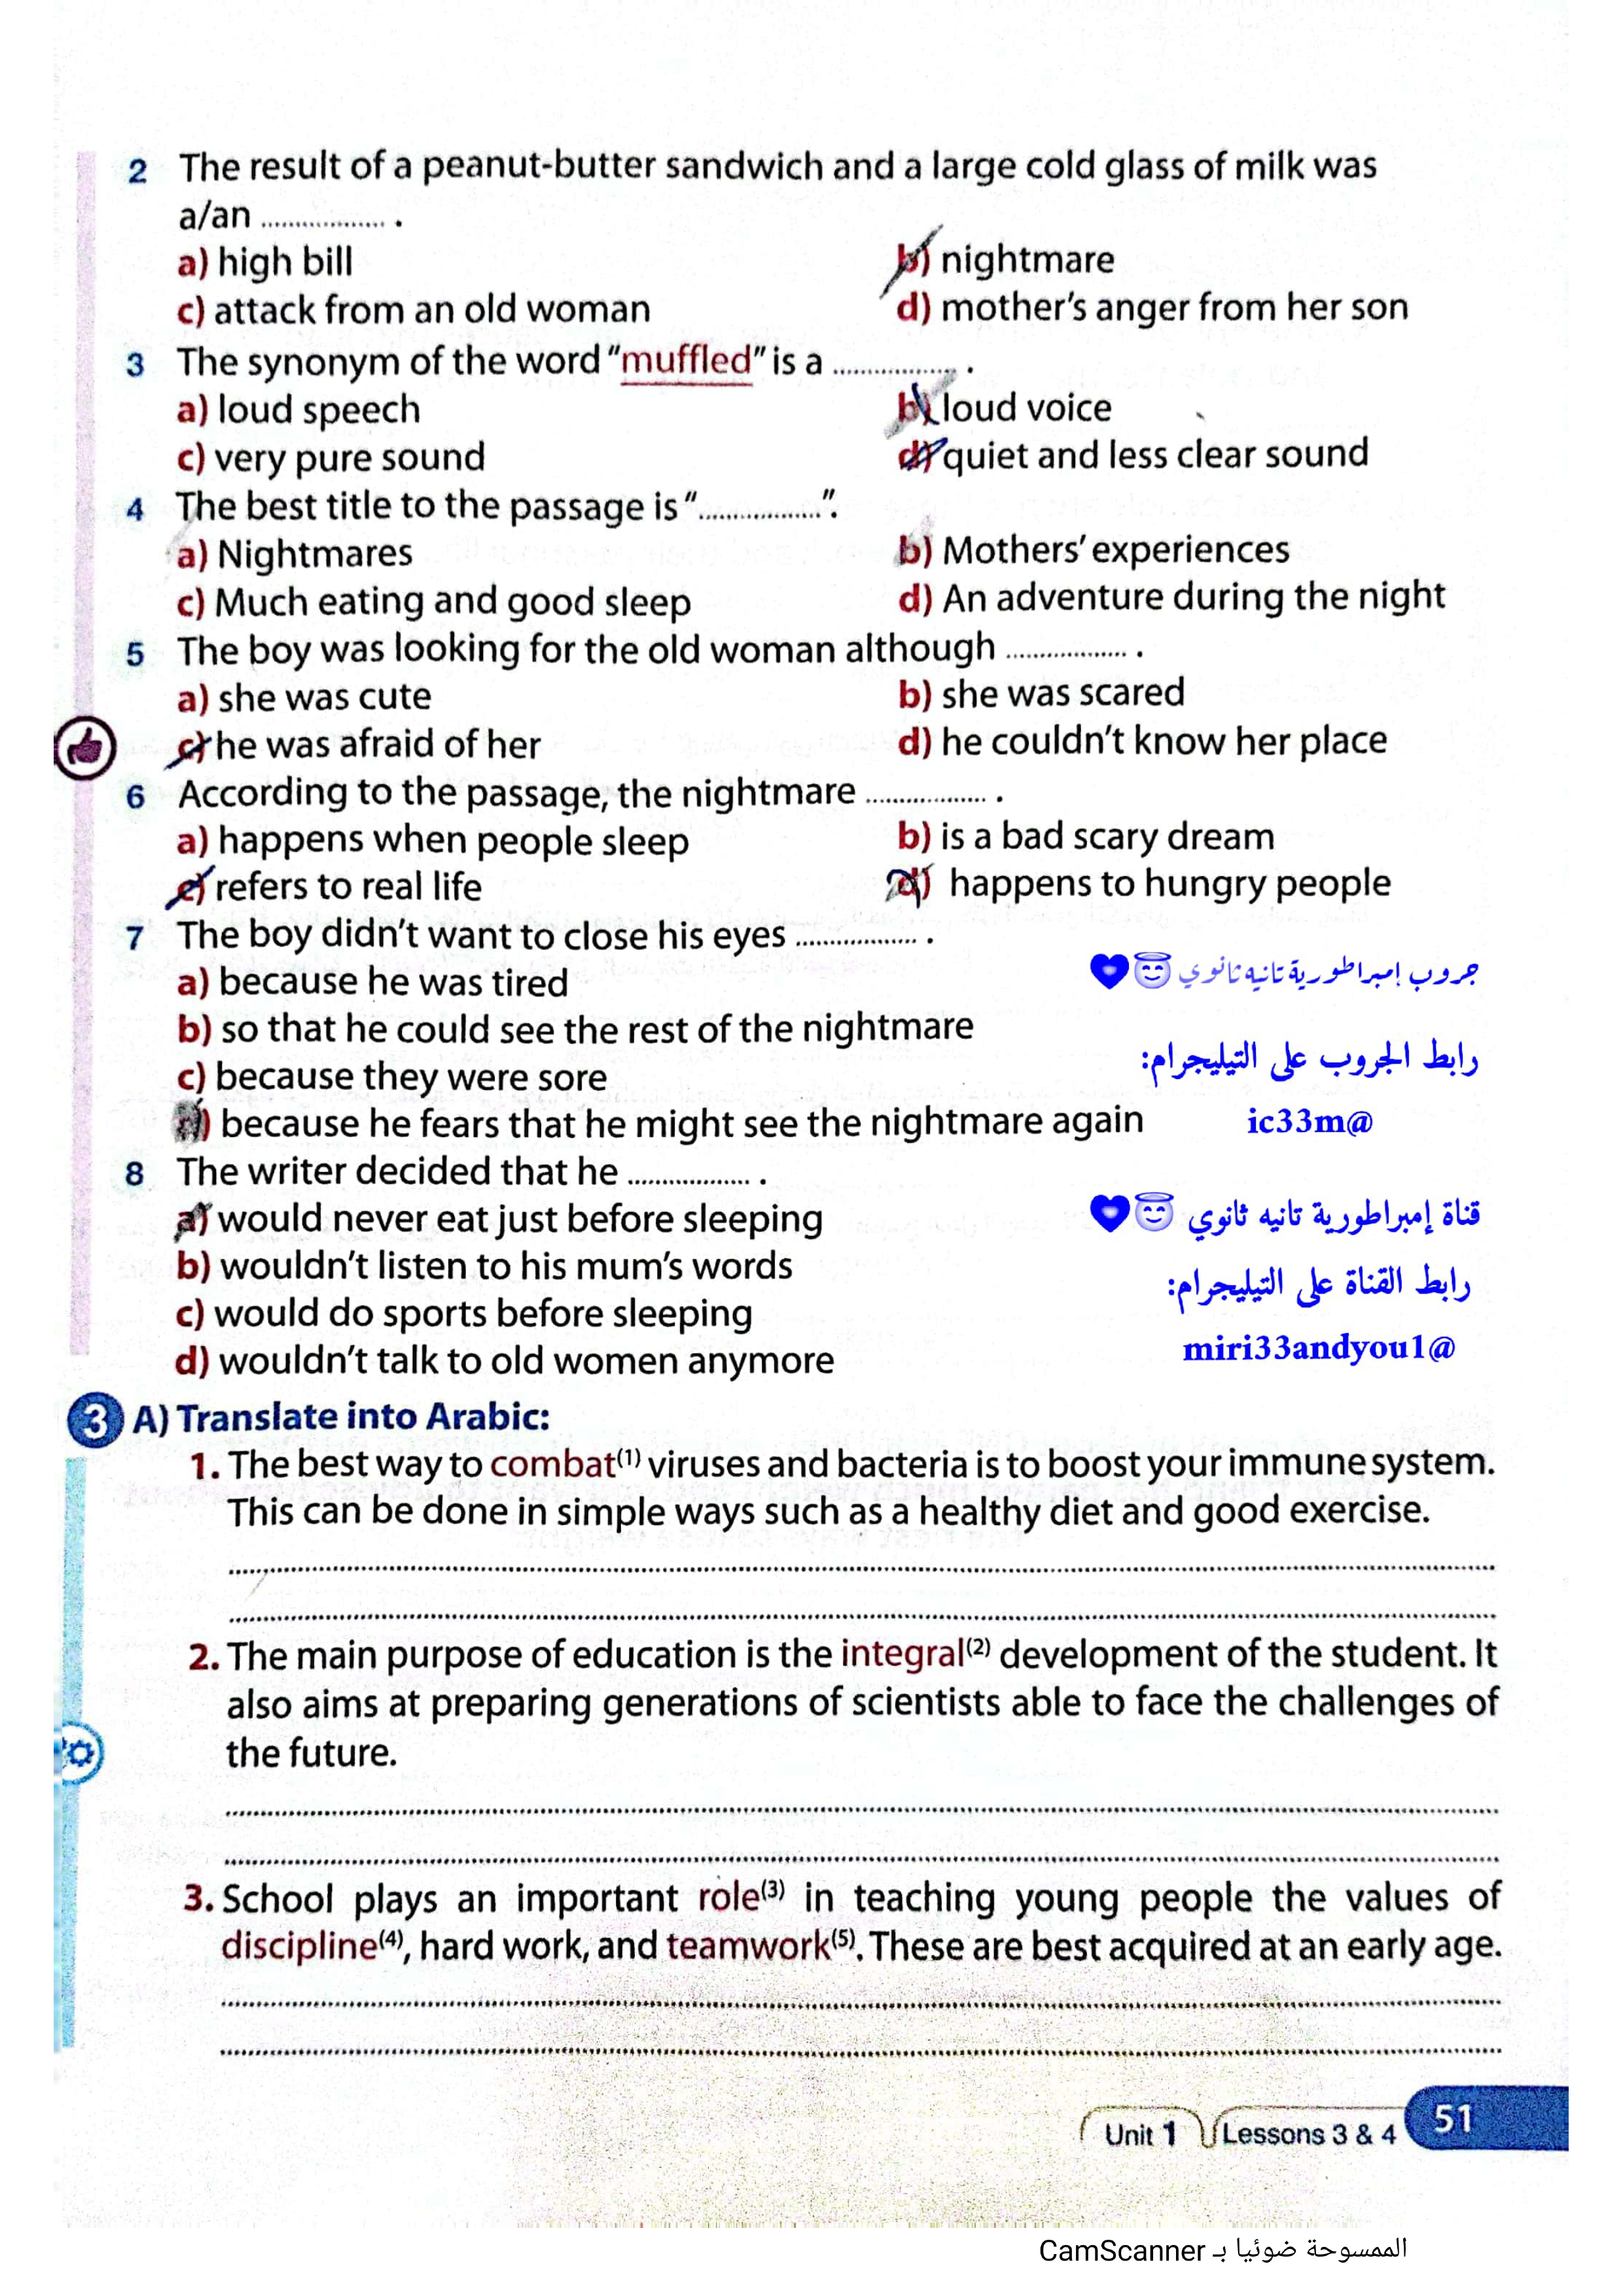 2 The result of a peanut-butter sandwich and a large cold glass of milk was
a/an .................. .
a) high bill b) nightmare
c) attack from an old woman d) mother's anger from her son
3 The synonym of the word "muffled" is a .................. .
a) loud speech b) loud voice
c) very pure sound d) quiet and less clear sound
4 The best title to the passage is "..................".
a) Nightmares b) Mothers' experiences
c) Much eating and good sleep d) An adventure during the night
5 The boy was looking for the old woman although .................. .
a) she was cute b) she was scared
c) he was afraid of her d) he couldn't know her place
6 According to the passage, the nightmare .................. .
a) happens when people sleep b) is a bad scary dream
c) refers to real life d) happens to hungry people
7 The boy didn't want to close his eyes .................. .
a) because he was tired
جروب إمبراطورية تانيه ثانوي
b) so that he could see the rest of the nightmare
رابط الجروب على التيليجرام:
c) because they were sore
d) because he fears that he might see the nightmare again
ic33m@
8 The writer decided that he .................. .
a) would never eat just before sleeping
قناة إمبراطورية تانيه ثانوي
b) wouldn't listen to his mum's words
رابط القناة على التيليجرام:
c) would do sports before sleeping
d) wouldn't talk to old women anymore
miri33andyou1@
3 A) Translate into Arabic:
1. The best way to combat(1) viruses and bacteria is to boost your immune system.
This can be done in simple ways such as a healthy diet and good exercise.
2. The main purpose of education is the integral(2) development of the student. It
also aims at preparing generations of scientists able to face the challenges of
the future.
3. School plays an important role(3) in teaching young people the values of
discipline(4), hard work, and teamwork(5). These are best acquired at an early age.
Unit 1 Lessons 3 & 4 51
الممسوحة ضوئيا بـ CamScanner